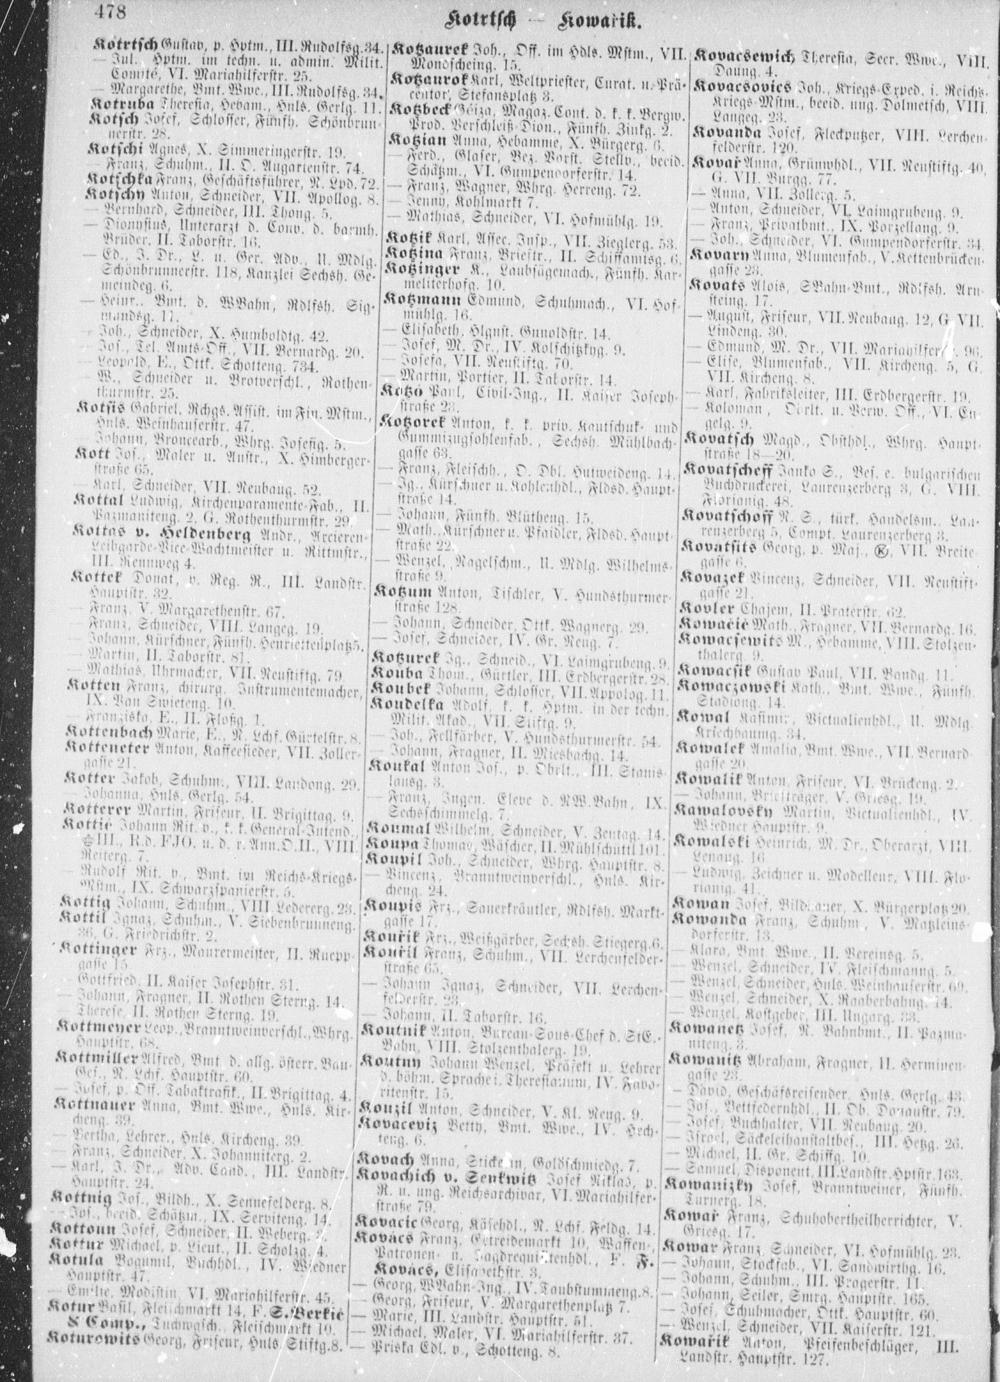 478
Kotrtsch — Kowařik.
Kotrtsch Gustav, p. Hptm., III. Rudolfsg. 34.
— Jul., Hptm. im techn. u. admin. Milit.
Comité, VI. Mariahilferstr. 25.
— Margarethe, Bmt. Wwe., III. Rudolfsg. 34.
Kotruba Theresia, Hebam., Hnls. Gerlg. 11.
Kotsch Josef, Schlosser, Fünfh. Schönbrun-
nerstr. 28.
Kotschi Agnes, X. Simmeringerstr. 19.
— Franz, Schuhm., II. O. Augartenstr. 74.
Kotschka Franz, Geschäftsführer, N. Lpd. 72.
Kotschy Anton, Schneider, VII. Apollog. 8.
— Bernhard, Schneider, III. Thong. 5.
— Dionysius, Unterarzt d. Conv. d. barmh.
Brüder, II. Taborstr. 16.
— Ed., J. Dr., L. u. Ger. Adv., U. Mdlg.
Schönbrunnerstr. 118, Kanzlei Sechsh. Ge-
meindeg. 6.
— Heinr., Bmt. d. WBahn, Rdlfsh. Sig-
mundsg. 17.
— Joh., Schneider, X. Humboldtg. 42.
— Jos., Tel. Amts-Off., VII. Bernardg. 20.
— Leopold, E., Ottk. Schotteng. 734.
— W., Schneider u. Brotverschl., Rothen-
thurmstr. 25.
Kotsis Gabriel, Rchgs. Assist. im Fin. Mstm.,
Hnls. Weinhauserstr. 47.
— Johann, Broncearb., Whrg. Josefig. 5.
Kott Jos., Maler u. Anstr., X. Himberger-
straße 65.
— Karl, Schneider, VII. Neubaug. 52.
Kottal Ludwig, Kirchenparamente-Fab., II.
Pazmaniteng. 2, G. Rothenthurmstr. 29.
Kottas v. Heldenberg Andr., Arcieren-
Leibgarde-Vice-Wachtmeister u. Rittmstr.,
III. Rennweg 4.
Kottek Donat, p. Reg. R., III. Landstr.
Hauptstr. 32.
— Franz, V. Margarethenstr. 67.
— Franz, Schneider, VIII. Langeg. 19.
— Johann, Kürschner, Fünfh. Henriettenplatz 5.
— Martin, II. Taborstr. 81.
— Mathias, Uhrmacher, VII. Neustiftg. 79.
Kotten Franz, chirurg. Instrumentemacher,
IX. Van Swieteng. 10.
— Franziska, E., II. Floßg. 1.
Kottenbach Marie, E., N. Lchf. Gürtelstr. 8.
Kotteneter Anton, Kaffeesieder, VII. Zoller-
gasse 21.
Kotter Jakob, Schuhm., VIII. Landong. 29.
— Johanna, Hnls. Gerlg. 54.
Kotterer Martin, Friseur, II. Brigittag. 9.
Kottié Johann Rit. v., k. k. General-Intend.,
III., R. d. FJO. u. d. r. Ann. O. II., VIII.
Reiterg. 7.
— Rudolf Rit. v., Bmt. im Reichs-Kriegs-
Mstm., IX. Schwarzspanierstr. 5.
Kottig Johann, Schuhm., VIII. Ledererg. 23.
Kottil Ignaz, Schuhm., V. Siebenbrunneng.
36, G. Friedrichstr. 2.
Kottinger Frz., Maurermeister, II. Ruepp-
gasse 15.
— Gottfried, II. Kaiser Josephstr. 31.
— Johann, Fragner, II. Rothen Sterng. 14.
— Therese, II. Rothen Sterng. 19.
Kottmeyer Leop., Branntweinverschl., Whrg.
Hauptstr. 68.
Kottmiller Alfred, Bmt. d. allg. österr. Bau-
Ges., N. Lchf. Hauptstr. 60.
— Josef, p. Off. Tabaktrafik., II. Brigittag. 4.
Kottnauer Anna, Bmt. Wwe., Hnls. Kir-
cheng. 39.
— Bertha, Lehrer., Hnls. Kircheng. 39.
— Franz, Schneider, X. Johanniterg. 2.
— Karl, J. Dr., Adv. Cand., III. Landstr.
Hauptstr. 24.
Kottnig Jos., Bildh., X. Sennefelderg. 8.
— Jos., beeid. Schätzm., IX. Serviteng. 14.
Kottoun Josef, Schneider, II. Weberg. 2.
Kottur Michael, p. Lieut., II. Scholzg. 4.
Kotula Bogumil, Buchhdl., IV. Wiedner
Hauptstr. 47.
— Emilie, Modistin, VI. Mariahilferstr. 45.
Kotur Basil, Fleischmarkt 14, F. S. Verkić
& Comp., Tuchwgsch., Fleischmarkt 10.
Koturowits Georg, Friseur, Hnls. Stiftg. 8.
Kotzaurek Joh., Off. im Hdls. Mstm., VII.
Mondscheing. 15.
Kotzaurok Karl, Weltpriester, Curat. u. Prä-
centor, Stefansplatz 3.
Kotzbeck Géiza, Magaz. Cont. d. k. k. Bergw.
Prod. Verschleiß-Dion., Fünfh. Zinkg. 2.
Kotzian Anna, Hebamme, X. Bürgerg. 6.
— Ferd., Glaser, Bez. Vorst. Stellv., beeid.
Schätzm., VI. Gumpendorferstr. 14.
— Franz, Wagner, Whrg. Herreng. 72.
— Jenny, Kohlmarkt 7.
— Mathias, Schneider, VI. Hofmühlg. 19.
Kotzik Karl, Assec. Insp., VII. Zieglerg. 53.
Kotzina Franz, Briestr., II. Schiffamtsg. 6.
Kotzinger K., Laubsägemach., Fünfh. Kar-
meliterhofg. 10.
Kotzmann Edmund, Schuhmach., VI. Hof-
mühlg. 16.
— Elisabeth, Hlgnst. Gunoldstr. 14.
— Josef, M. Dr., IV. Kolschitzkyg. 9.
— Josefa, VII. Neustiftg. 70.
— Martin, Portier, II. Taborstr. 14.
Kotzó Paul, Civil-Ing., II. Kaiser Joseph-
straße 23.
Kotzorek Anton, k. k. priv. Kautschuk- und
Gummizugsohlenfab., Sechsh. Mühlbach-
gasse 63.
— Franz, Fleischh., O. Dbl. Hutweideng. 14.
— Ig., Kürschner u. Kohlenhdl., Fldsd. Haupt-
straße 14.
— Johann, Fünfh. Blütheng. 15.
— Math., Kürschner u. Pfaidler, Fldsd. Haupt-
straße 22.
— Wenzel, Nagelschm., U. Mdlg. Wilhelms-
straße 9.
Kotzum Anton, Tischler, V. Hundsthurmer-
straße 128.
— Johann, Schneider, Ottk. Wagnerg. 29.
— Josef, Schneider, IV. Gr. Neug. 7.
Kotzurek Ig., Schneid., VI. Laimgrubeng. 9.
Kouba Thom., Gürtler, III. Erdbergerstr. 28.
Koubek Johann, Schlosser, VII. Appolog. 11.
Koudelka Adolf, k. k. Hptm. in der techn.
Milit. Akad., VII. Stiftg. 9.
— Joh., Fellfärber, V. Hundsthurmerstr. 54.
— Johann, Fragner, II. Miesbachg. 14.
Koukal Anton Jos., p. Obrlt., III. Stanis-
lausg. 3.
— Franz, Ingen. Eleve d. NWBahn, IX.
Sechsschimmelg. 7.
Koumal Wilhelm, Schneider, V. Zentag. 14.
Koupa Thomas, Wäscher, II. Mühlschüttl 101.
Koupil Joh., Schneider, Whrg. Hauptstr. 8.
— Vincenz, Branntweinverschl., Hnls. Kir-
cheng. 24.
Koupis Frz., Sauerkräutler, Rdlfsh. Markt-
gasse 17.
Kouřik Frz., Weißgärber, Sechsh. Stiegerg. 6.
Kouřil Franz, Schuhm., VII. Lerchenfelder-
straße 65.
— Johann Ignaz, Schneider, VII. Lerchen-
felderstr. 23.
— Johann, II. Taborstr. 16.
Koutnik Anton, Bureau-Sous-Chef d. StE.-
Bahn, VIII. Stolzenthalerg. 19.
Koutny Johann Wenzel, Präfekt u. Lehrer
d. böhm. Sprache i. Theresianum, IV. Favo-
ritenstr. 15.
Kouzil Anton, Schneider, V. Kl. Neug. 9.
Kovaceviz Betty, Bmt. Wwe., IV. Hech-
teng. 6.
Kovach Anna, Stickerin, Goldschmiedg. 7.
Kovachich v. Senkwitz Josef Niklas, p.
R. u. ung. Reichsarchivar, VI. Mariahilfer-
straße 79.
Kovacic Georg, Käsehdl., N. Lchf. Feldg. 14.
Kovács Franz, Getreidemarkt 10, Waffen-,
Patronen- u. Jagdrequisitenhdl., F. F.
Kovács, Elisabethstr. 3.
— Georg, WBahn-Ing., IV. Taubstummeng. 8.
— Georg, Friseur, V. Margarethenplatz 7.
— Marie, III. Landstr. Hauptstr. 51.
— Michael, Maler, VI. Mariahilferstr. 37.
— Priska Edl. v., Schotteng. 8.
Kovacsewich Theresia, Secr. Wwe., VIII.
Daung. 4.
Kovacsovics Joh., Kriegs-Exped. i. Reichs-
Kriegs-Mstm., beeid. ung. Dolmetsch, VIII.
Langeg. 23.
Kovanda Josef, Fleckputzer, VIII. Lerchen-
felderstr. 120.
Kovař Anna, Grünwhdl., VII. Neustiftg. 40,
G. VII. Burgg. 77.
— Anna, VII. Zollerg. 5.
— Anton, Schneider, VI. Laimgrubeng. 9.
— Franz, Privatbmt., IX. Porzellang. 9.
— Joh., Schneider, VI. Gumpendorferstr. 34.
Kovarn Anna, Blumenfab., V. Kettenbrücken-
gasse 23.
Kovats Alois, SBahn-Bmt., Rdlfsh. Arn-
steing. 17.
— August, Friseur, VII. Neubaug. 12, G. VII.
Lindeng. 30.
— Edmund, M. Dr., VII. Mariahilferstr. 96.
— Elise, Blumenfab., VII. Kircheng. 5, G.
VII. Kircheng. 8.
— Karl, Fabriksleiter, III. Erdbergerstr. 19.
— Koloman, Obrlt. u. Verw. Off., VI. En-
gelg. 9.
Kovatsch Magd., Obsthdl., Whrg. Haupt-
straße 18—20.
Kovatscheff Janko S., Bes. e. bulgarischen
Buchdruckerei, Laurenzerberg 3, G. VIII.
Florianig. 48.
Kovatschoff N. S., türk. Handelsm., Lau-
renzerberg 5, Compt. Laurenzerberg 3.
Kovatsits Georg, p. Maj., Ⓚ, VII. Breite-
gasse 6.
Kovazek Vincenz, Schneider, VII. Neustift-
gasse 21.
Kovler Chajem, II. Praterstr. 62.
Kowačič Math., Fragner, VII. Bernardg. 16.
Kowacsewits M., Hebamme, VIII. Stolzen-
thalerg. 9.
Kowacsik Gustav Paul, VII. Bandg. 11.
Kowaczowski Kath., Bmt. Wwe., Fünfh.
Stadiong. 14.
Kowal Kasimir, Victualienhdl., U. Mdlg.
Kriechbaumg. 34.
Kowalek Amalia, Bmt. Wwe., VII. Bernard-
gasse 20.
Kowalik Anton, Friseur, VI. Brückeng. 2.
— Johann, Briefträger, V. Griesg. 19.
Kawalovsky Martin, Victualienhdl., IV.
Wiedner Hauptstr. 9.
Kowalski Heinrich, M. Dr., Oberarzt, VIII.
Lenaug. 16.
— Ludwig, Zeichner u. Modelleur, VIII. Flo-
rianig. 41.
Kowan Josef, Bildhauer, X. Bürgerplatz 20.
Kowanda Franz, Schuhm., V. Matzleins-
dorferstr. 13.
— Klara, Bmt. Wwe., II. Vereinsg. 5.
— Wenzel, Schneider, IV. Fleischmanng. 5.
— Wenzel, Schneider, Hnls. Weinhauserstr. 69.
— Wenzel, Schneider, X. Raaberbahng. 14.
— Wenzel, Kostgeber, III. Ungarg. 33.
Kowanetz Josef, N. Bahnbmt., II. Pazma-
niteng. 3.
Kowanitz Abraham, Fragner, II. Herminen-
gasse 23.
— David, Geschäftsreisender, Hnls. Gerlg. 43.
— Jos., Bettfedernhdl., II. Ob. Donaustr. 79.
— Josef, Buchhalter, VII. Neubaug. 20.
— Israel, Säckeleihanstaltbes., III. Hetzg. 26.
— Michael, II. Gr. Schiffg. 10.
— Samuel, Disponent, III. Landstr. Hptstr. 163.
Kowanizky Josef, Branntweiner, Fünfh.
Turnerg. 18.
Kowař Franz, Schuhobertheilherrichter, V.
Griesg. 17.
Kowar Franz, Schneider, VI. Hofmühlg. 23.
— Johann, Stockfab., VI. Sandwirthg. 16.
— Johann, Schuhm., III. Pragerstr. 11.
— Johann, Seiler, Smrg. Hauptstr. 165.
— Josef, Schuhmacher, Ottk. Hauptstr. 60.
— Wenzel, Schneider, VII. Kaiserstr. 121.
Kowařik Anton, Pfeifenbeschläger, III.
Landstr. Hauptstr. 127.